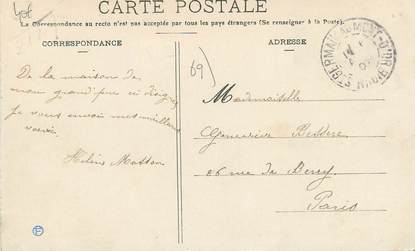 40f
CARTE POSTALE
La Correspondance au recto n'est pas acceptée par tous les pays étrangers (Se renseigner à la Poste).
CORRESPONDANCE
ADRESSE
ST GERMAIN-AU-MONT-D'OR RHONE
69)
De la maison de
mon grand'père
je vous envoie mes meilleurs
Hélène Matton
Mademoiselle
Geneviève
rue de Bercy
Paris